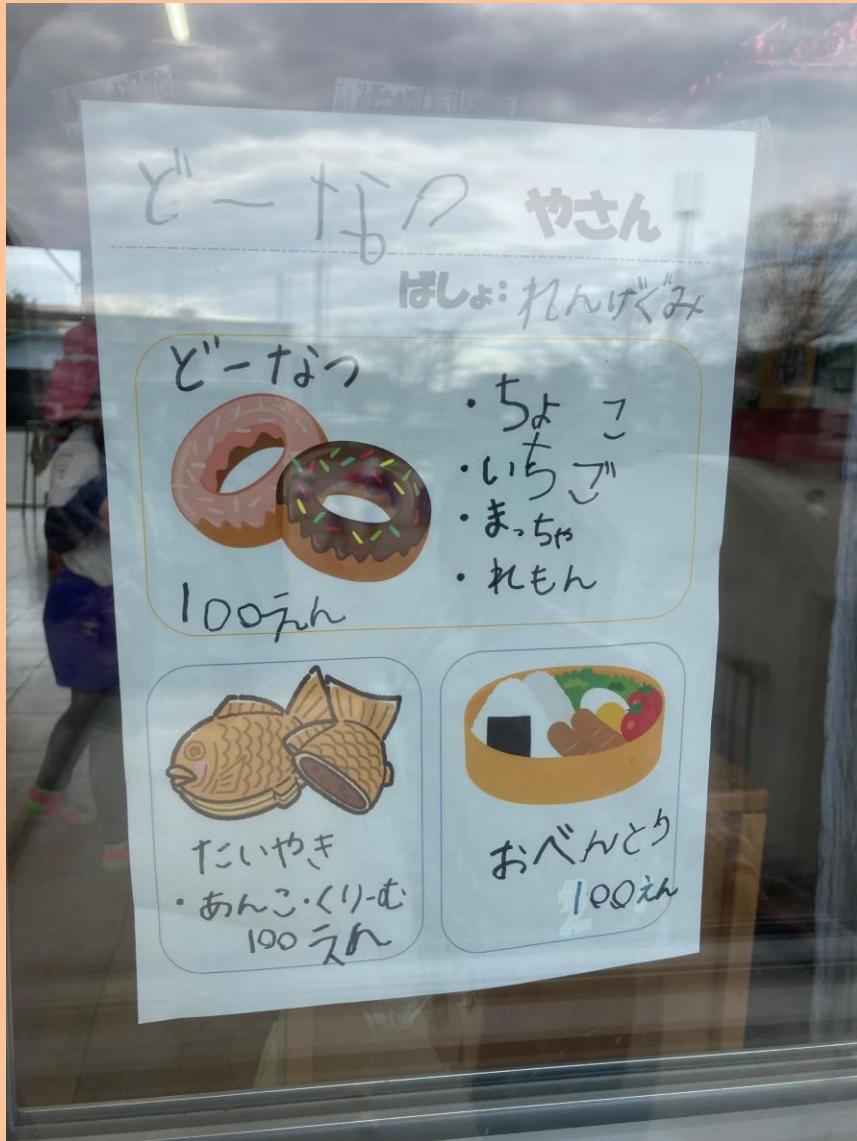 どーなつ やさん
ばしょ: れんげぐみ
どーなつ
・ちょこ
・いちご
・まっちゃ
・れもん
100えん
たいやき
・あんこ・くりーむ
100えん
おべんとう
100えん